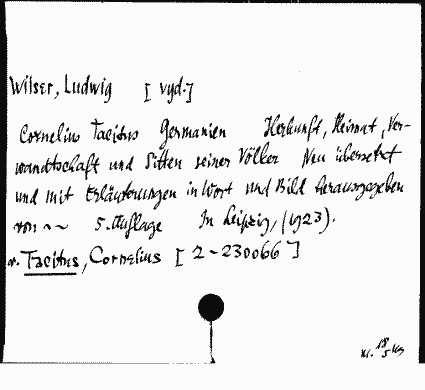 Wilser, Ludwig [vyd.]
Cornelius Tacitus Germanien Herkunft, Heimat, Ver-
wandtschaft und Sitten seiner Völker Neu übersetzt
und mit Erläuterungen in Wort und Bild herausgegeben
von ~~ 5. Auflage In Leipzig, (1923).
v. Tacitus, Cornelius [2-230066]